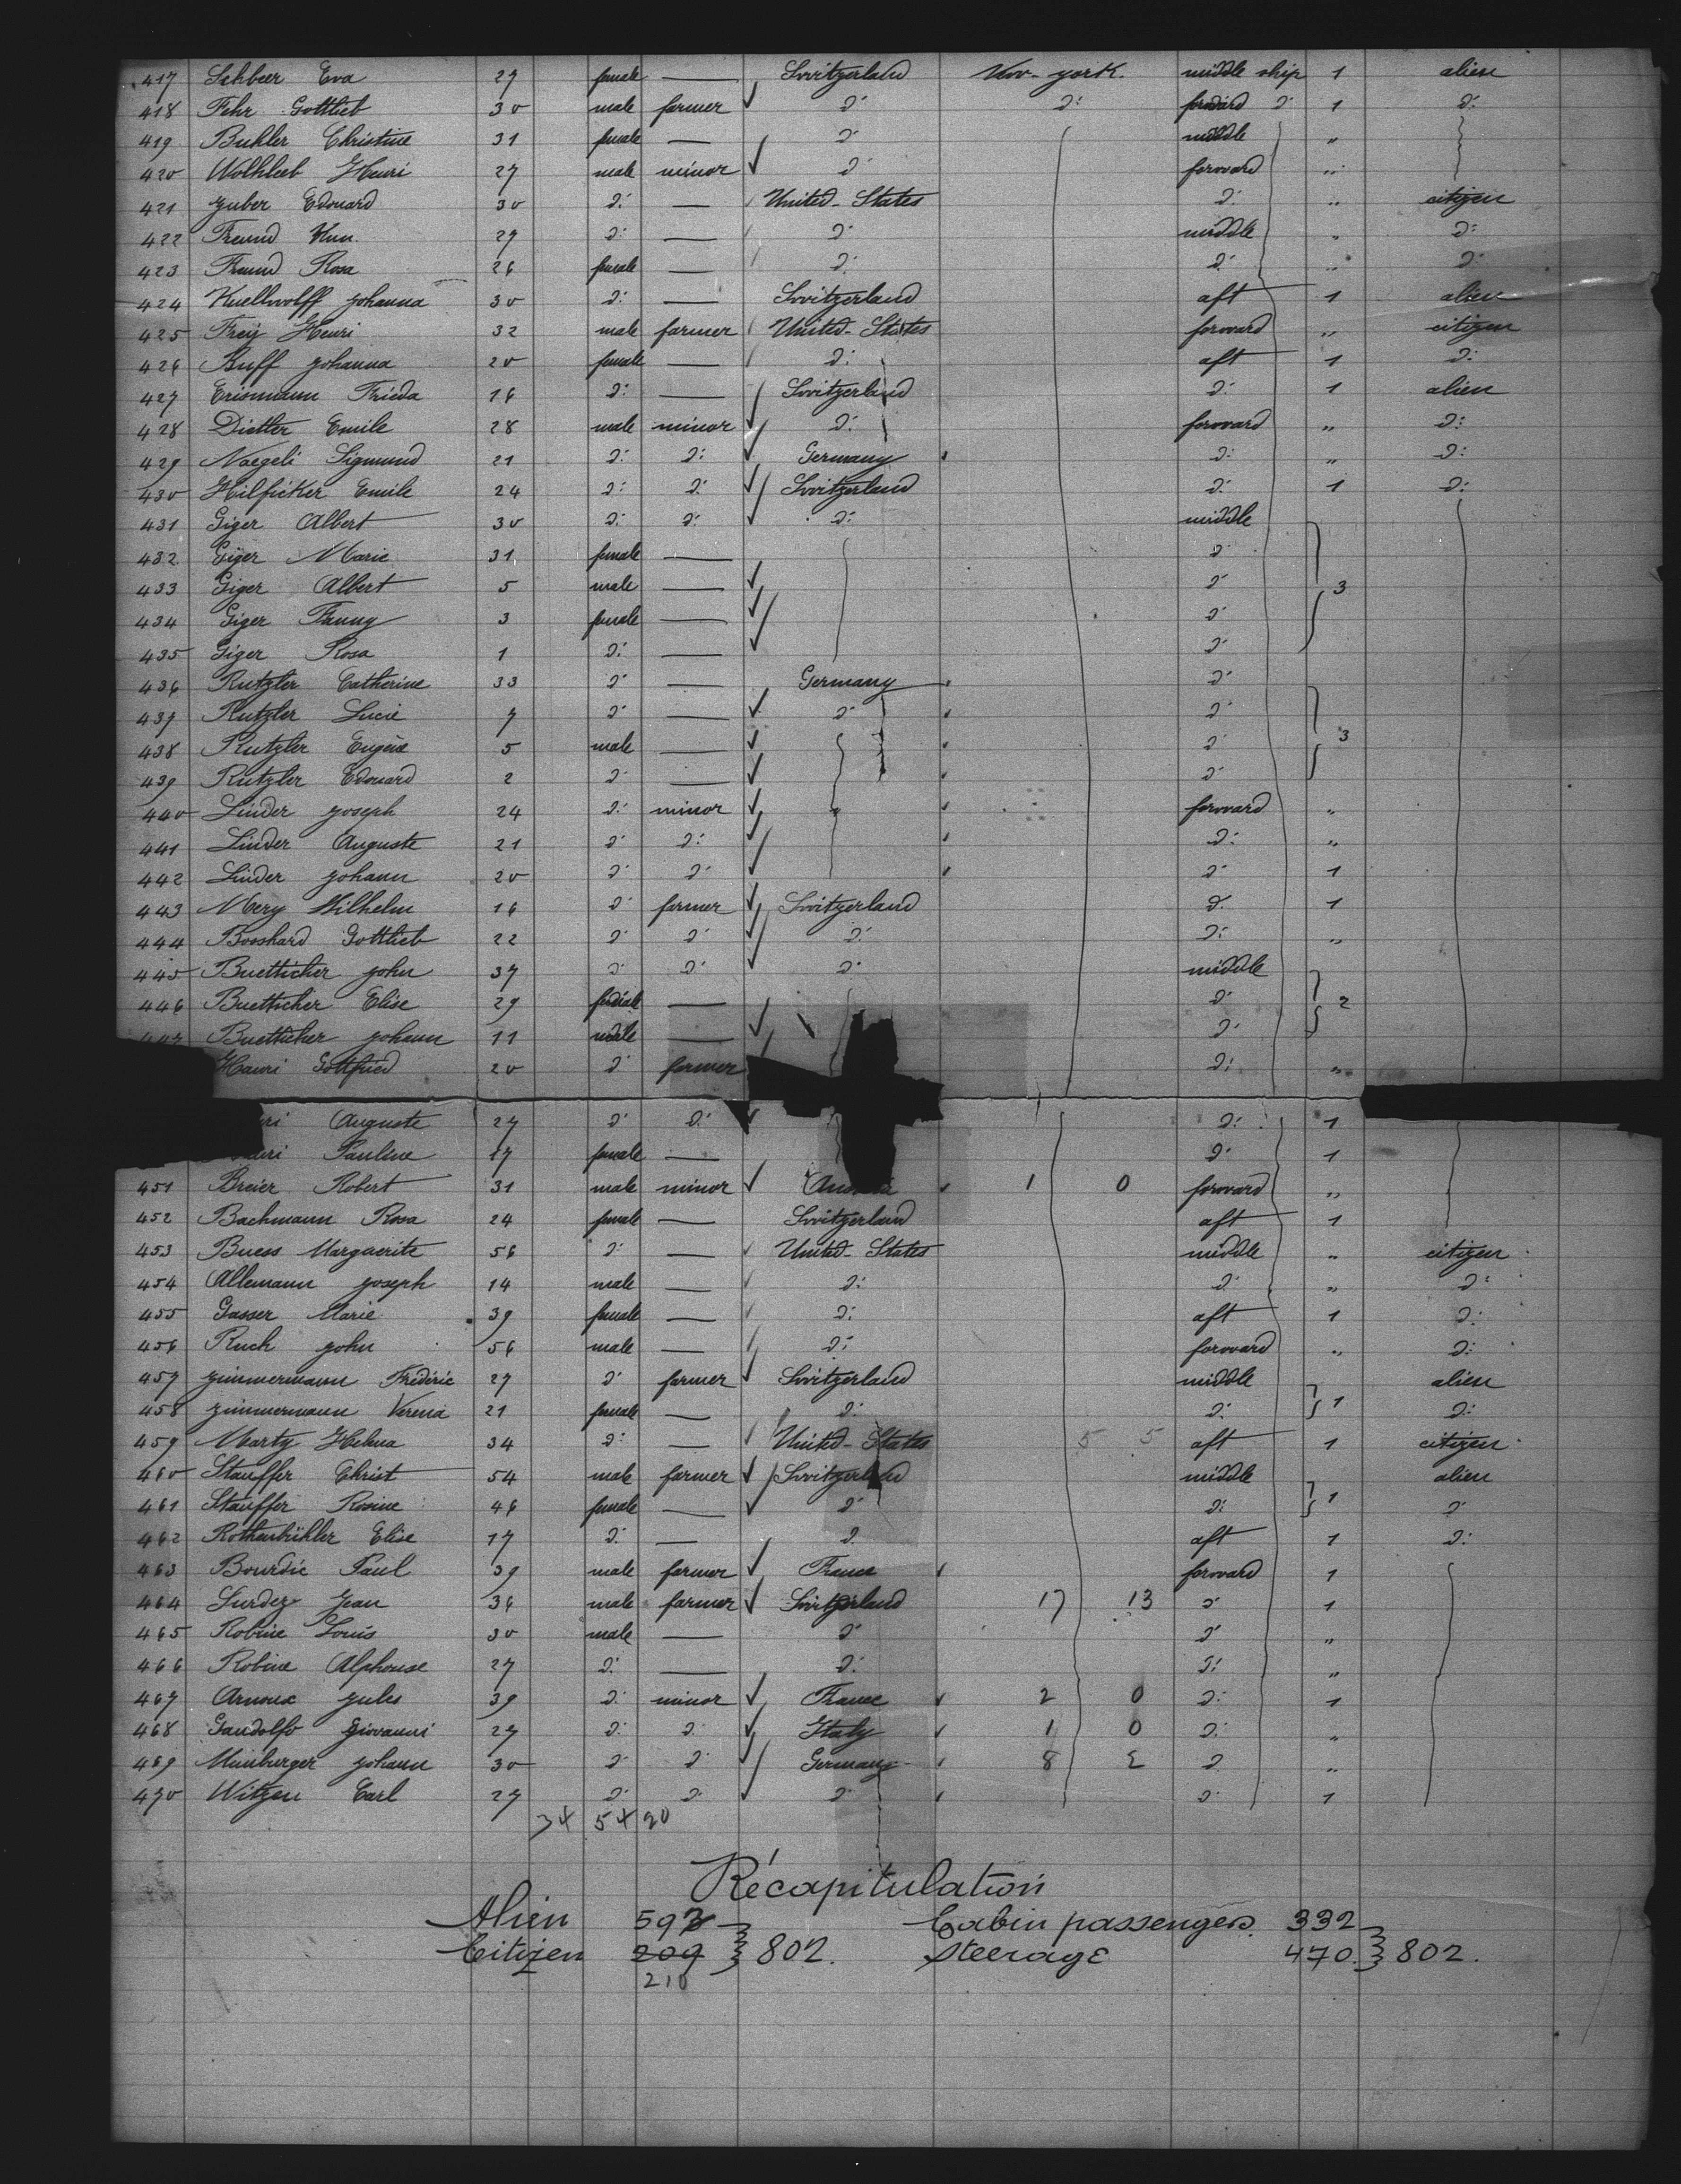 417 Schbeer Eva 27 female — Switzerland New-york. middle ship 1 alien
418 Fehr Gottlieb 30 male farmer d: d: forward d: 1 d:
419 Buhler Christine 31 female — d: middle "
420 Wolhleb Henri 27 male minor d: forward "
421 Zuber Edouard 30 d: — United-States d: " citizen
422 Freund Hun. 27 d: — d: middle " d:
423 Freund Rosa 26 female — d: d: " d:
424 Kuellwolff Johanna 30 d: — Switzerland aft 1 alien
425 Frey Henri 32 male farmer United-States forward " citizen
426 Buff Johanna 20 female — d: aft 1 d:
427 Erismann Frieda 16 d: — Switzerland d: 1 alien
428 Dietler Emile 28 male minor d: forward " d:
429 Naegeli Sigmund 21 d: d: Germany d: " d:
430 Hilficker Emile 24 d: d: Switzerland d: 1 d:
431 Giger Albert 30 d: d: d: middle
432 Giger Marie 31 female — d:
433 Giger Albert 5 male — d: 3
434 Giger Fanny 3 female — d:
435 Giger Rosa 1 d: — d:
436 Rutzler Catherine 33 d: — Germany d:
437 Rutzler Lucie 7 d: — d: d:
438 Rutzler Eugène 5 male — d: 3
439 Rutzler Edouard 2 d: — d:
440 Linder Joseph 24 d: minor forward "
441 Linder Auguste 21 d: d: d: "
442 Linder Johann 20 d: d: d: 1
443 Mery Wilhelm 16 d: farmer Switzerland d: 1
444 Bosshard Gottlieb 22 d: d: d: d: "
445 Buetticher John 37 d: d: d: middle
446 Buetticher Elise 29 female — d: 2
447 Buetticher Johann 11 male — d:
Hauri Gottfried 20 d: farmer d: "
Auguste 27 d: d: d: 1
Pauline 17 female — d: 1
451 Breier Robert 31 male minor 1 0 forward "
452 Bachmann Rosa 24 female — Switzerland aft 1
453 Buess Marguerite 56 d: — United-States middle " citizen
454 Allemann Joseph 14 male — d: d: " d:
455 Gasser Marie 39 female — d: aft 1 d:
456 Ruch John 56 male — d: forward " d:
457 Zimmermann Frédéric 27 d: farmer Switzerland middle alien
458 Zimmermann Verena 21 female — d: d: 1 d:
459 Marty Helena 34 d: — United-States 5 5 aft 1 citizen
460 Stauffer Christ 54 male farmer Switzerland middle alien
461 Stauffer Rosine 46 female — d: d: 1 d:
462 Rothenbühler Elise 17 d: — d: aft 1 d:
463 Bourdic Paul 39 male farmer France forward 1
464 Surdez Jean 36 male farmer Switzerland 17 13 d: 1
465 Robine Louis 30 male — d: d: "
466 Robine Alphonse 27 d: — d: d: "
467 Arnoux Jules 39 d: minor France 2 0 d: 1
468 Gandolfo Giovanni 27 d: d: Italy 1 0 d: "
469 Muinburger Johann 30 d: d: Germany 8 2 d: "
470 Witzen Carl 27 d: d: d: d: 1
34 54 20
Récapitulation
Alien 592 Cabin passengers. 332
Citizen 209 } 802. Steerage 470 } 802.
210